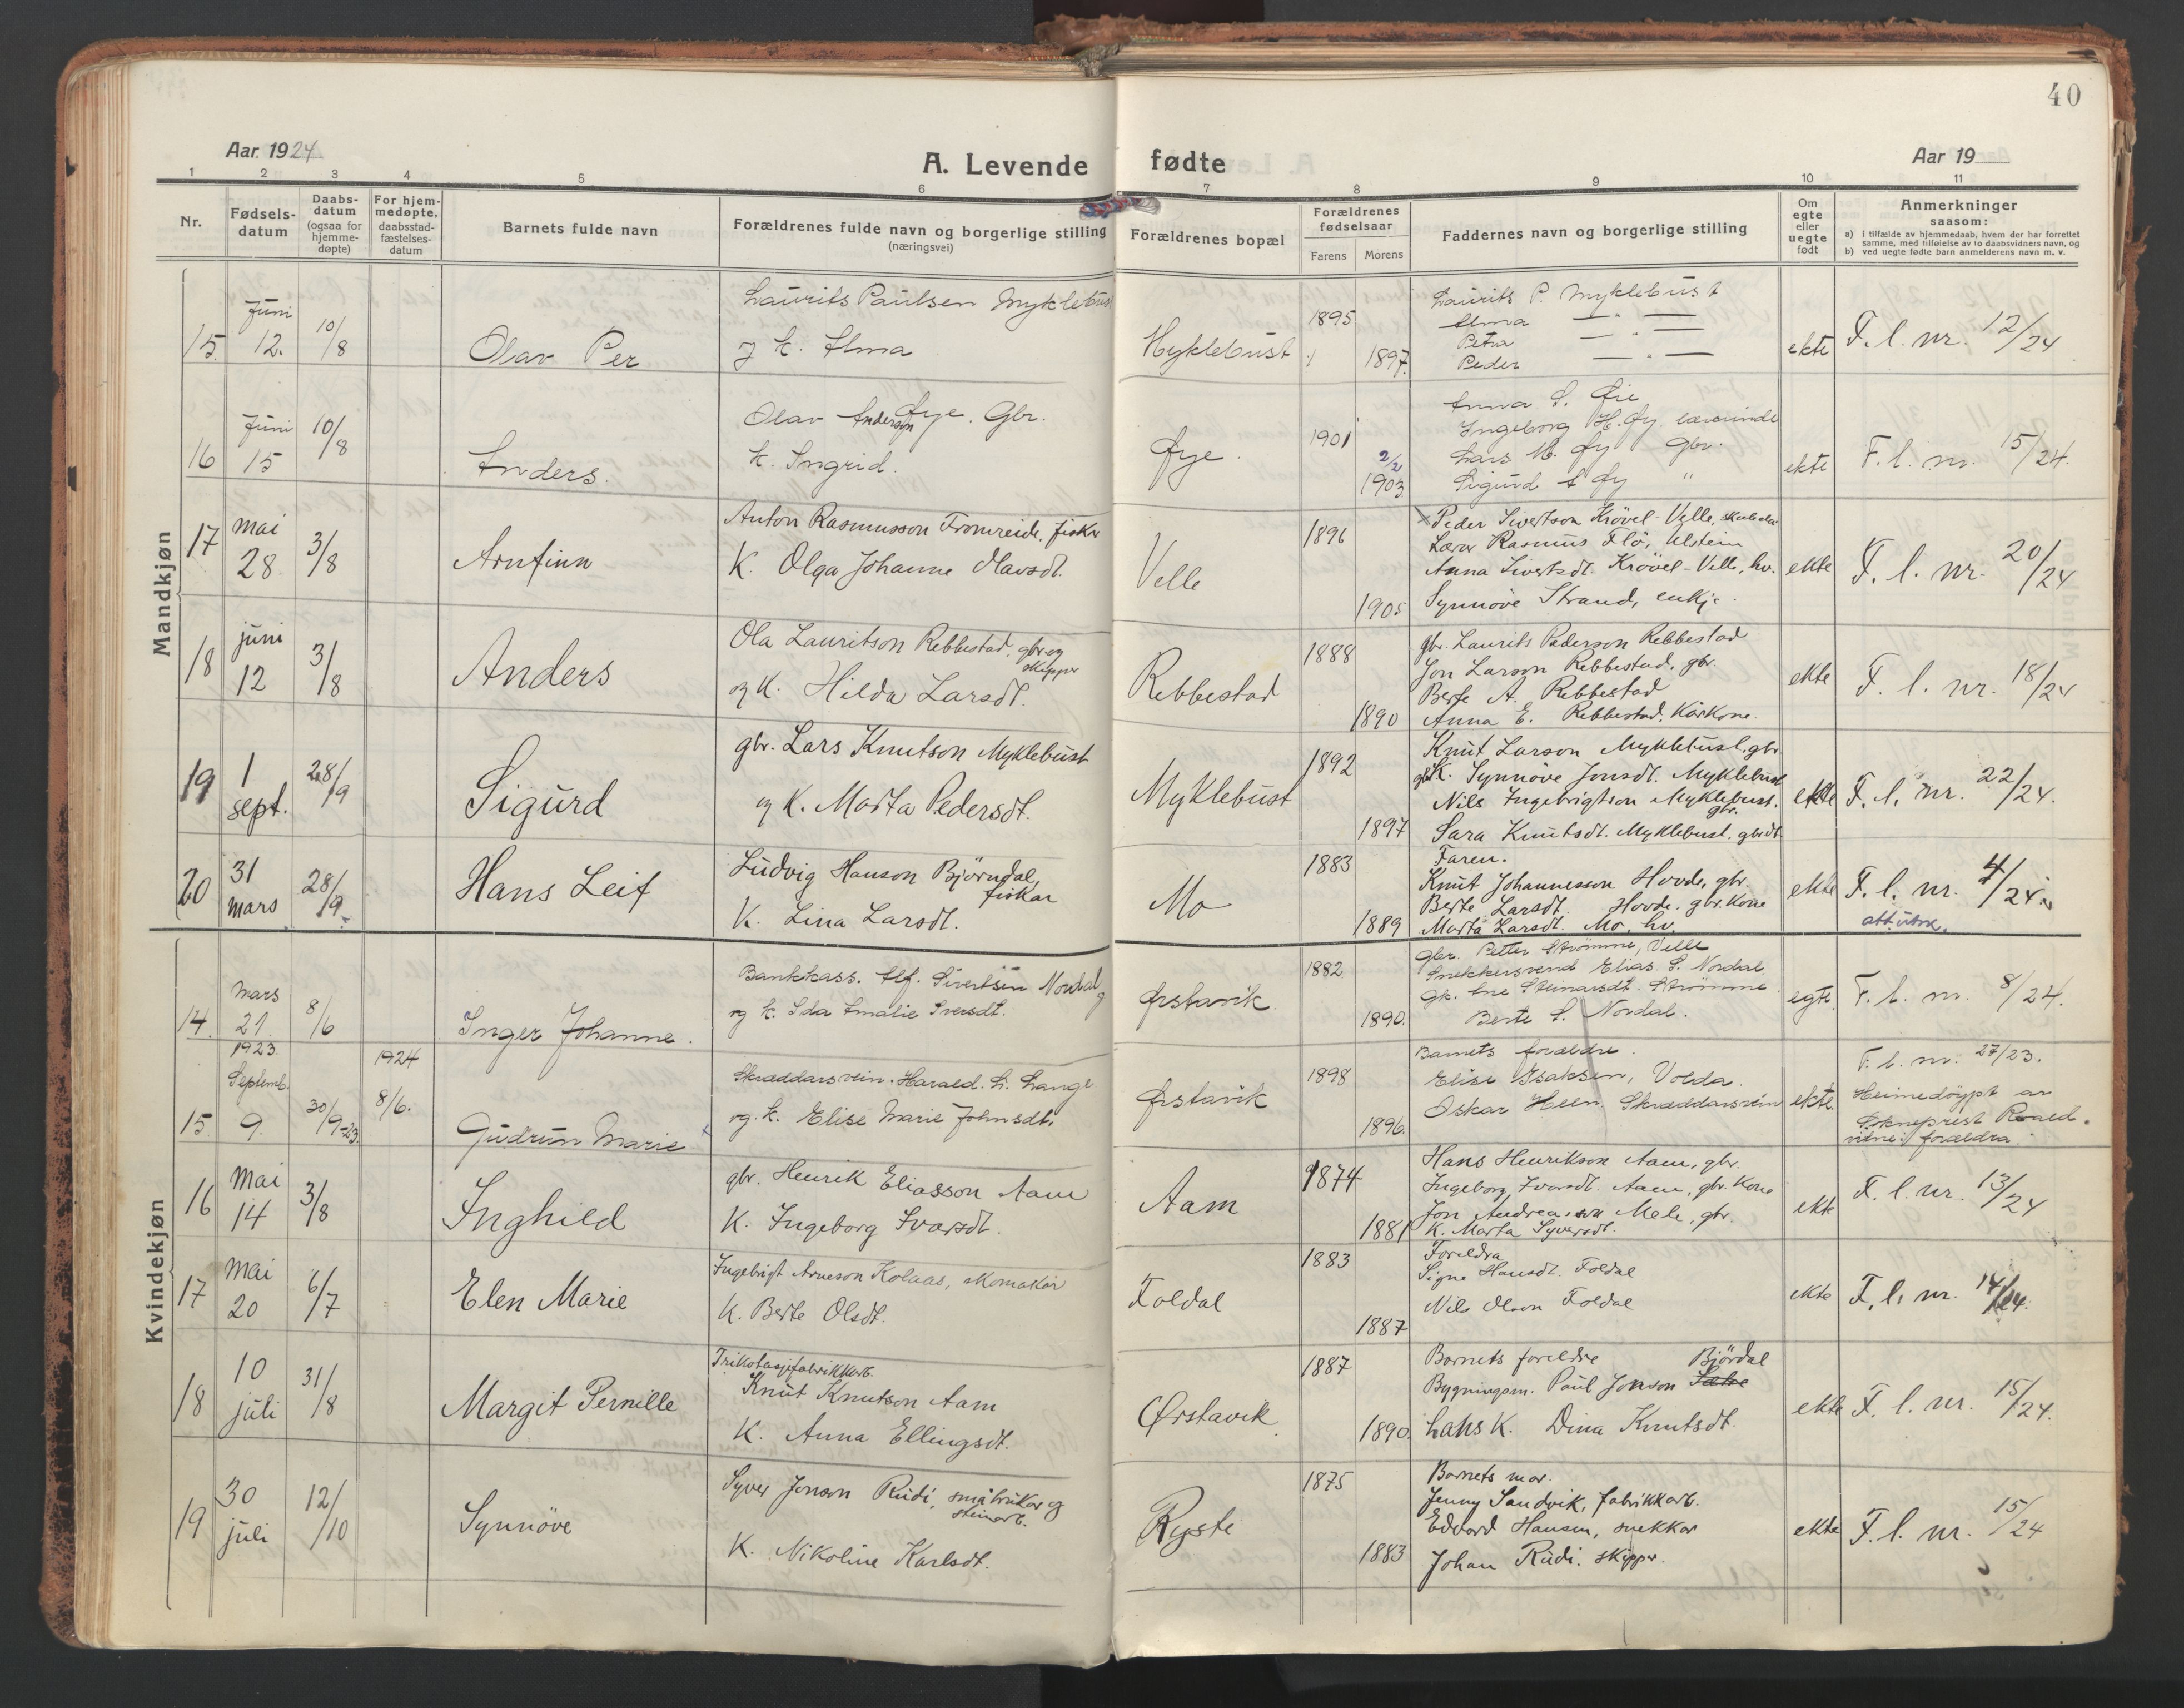 40
Aar. 1924
A. Levende fødte
Aar 19
1 2 3 4 5 6 7 8 9 10 11
Nr.
Fødsels-
datum
Daabs-
datum
(ogsaa for
hjemme-
døpte)
For hjem-
medøpte,
daabsstad-
fæstelses-
datum
Barnets fulde navn
Forældrenes fulde navn og borgerlige stilling
(næringsvei)
Forældrenes bopæl
Forældrenes
fødselsaar
Farens
Morens
Faddernes navn og borgerlige stilling
Om
egte
eller
uegte
født
Anmerkninger
saasom:
a) i tilfælde av hjemmedaab, hvem der har forrettet
samme, med tilføielse av to daabsvidners navn, og
b) ved uegte fødte barn anmelderens navn m. v.
Mandkjøn
15. Juni 12. 10/8
Olav Per
Laurits Paulsen Myklebust
og k. Alma
Myklebust
1895
1897.
Laurits P. Myklebust
Alma — " —
Petra — " —
Peder — " —
ekte
F. l. nr. 12/24
16 Juni 15 10/8
Anders.
Olav Anderson Øye. Gbr.
k. Ingrid.
Øye.
1901
2/2
1903.
Anna S. Øie
Ingeborg H. Øy. lærarinde
Lars M. Øy Gbr.
Sigurd A Øy "
ekte
F. l. nr. 15/24.
17 Mai 28 3/8
Arnfinn
Anton Rasmusson Fromreide, fiskar
K. Olga Johanne Olavsdt.
Velle
1896
1905
Peder Sivertson Krövel-Velle,
Lærar Rasmus Flö, Ulstein
Anna Sivertsdt. Krövel-Velle, hv.
Synnöve Strand, enkje.
ekte
F. l. nr. 20/24
18 juni 12 3/8
Anders
Ola Lauritson Rebbestad, gbr og
skipper
og K. Hilda Larsdt.
Rebbestad
1888
1890
gbr. Laurits Pederson Rebbestad
Jon Larson Rebbestad, gbr.
Berte A. Rebbestad
Anna E. Rebbestad, Kårkone.
ekte
F. l. nr. 18/24
19 1 sept. 28/9
Sigurd
gbr. Lars Knutson Myklebust
og K. Marta Pedersdt.
Myklebust
1892
1897
Knut Larson Myklebust, gbr
K. Synnöve Jonsdt. Myklebust
Nils Ingebrigtson Myklebust.
gbr.
Sara Knutsdt. Myklebust. gbrdt.
ekte
F. l. nr. 22/24.
20 31 mars 28/9
Hans Leif
Ludvig Hanson Björndal,
fiskar
K. Lina Larsdt.
Mo
1883
1889
Faren.
Knut Johannesson Hovde, gbr.
Berte Larsdt. Hovde. gbr. Kone
Marta Larsdt. Mo, hv.
ekte
F. l. nr. 4/24
att. utsk.
Kvindekjøn
14. Mars 21. 8/6
Inger Johanne.
Bankkass. Alf. Sivertsen Nordal
og k. Ida Amalie Iversdt.
Ørstavik
1882
1890.
Gbr. Petter Strømme, Velle
Snekkersvend Elias S. Nordal
Gk. Ane Steinarsdt. Strømme
Berte S. Nordal.
egte
F. l. nr. 8/24.
15 1923. Septemb. 9. 30/9-23.
1924
8/6.
Gudrun Marie
Skræddarsvein. Harald. L. Lange
og. k. Elise Marie Johnsdt.
Ørstavik
1898
1896.
Barnets forældre.
Elise Isaksen, Volda.
Oskar Heen. Skræddarsvein
ekte.
F. l. nr. 27/23.
Heimedöypt av
Sokneprest Roald.
vitne: forældra.
16 Mai 14 3/8
Inghild
gbr. Henrik Eliasson Aam
K. Ingeborg Ivarsdt.
Aam
1874
1881
Hans Henrikson Aam, gbr.
Ingeborg Ivarsdt. Aam, gbr. Kone
Jon Andreasson Mele, gbr.
K. Marta Syversdt.
ekte
F. l. nr. 13/24
17 Mai 20 6/7
Elen Marie
Ingebrigt Arneson Kolaas, skomakar
K. Berte Olsdt.
Foldal
1883
1887
Foreldra
Signe Hansdt. Foldal
Nils Olson Foldal
ekte
F. l. nr. 14/24.
18 10 juli 31/8
Margit Pernille
Trikotasjefabrikkarb.
Knut Knutson Aam
K. Anna Ellingsdt.
Ørstavik
1887
1890.
Barnets foreldre
Björdal
Bygningsm. Paul Jonson Sætre
hans K. Dina Knutsdt.
ekte
F. l. nr. 15/24.
19 30 juli 12/10
Synnöve
Syver Jonson Rudi, småbrukar og
steinarb.
K. Nikoline Karlsdt.
Ryste
1875
1883
Barnets mor.
Jenny Sandvik, fabrikkarb.
Edvard Hansen, snekkar
Johan Rudi. skipper.
ekte
F. l. nr. 15/24